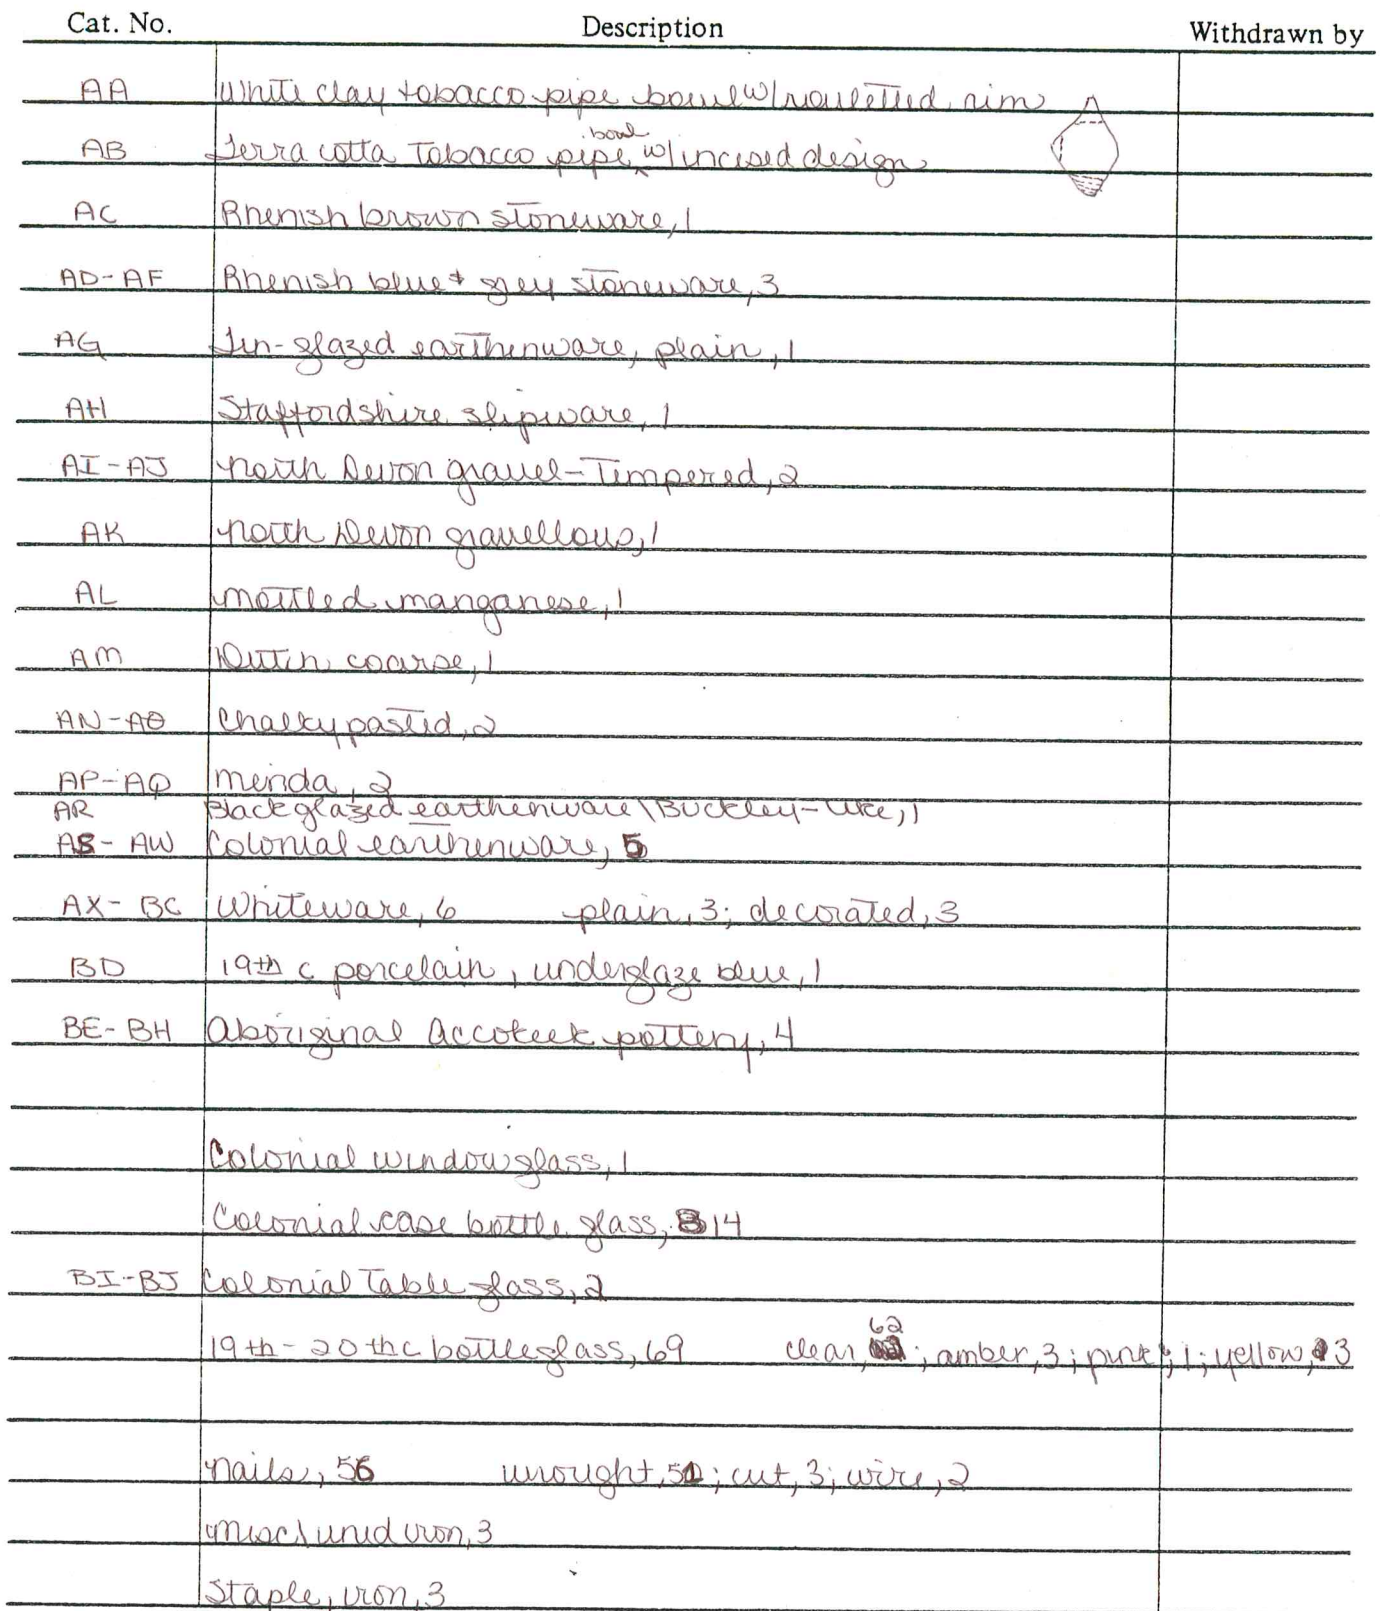 Cat. No. Description Withdrawn by
AA White clay tobacco pipe bowl w/rouletted rim
AB Terra cotta tobacco pipe bowl w/incised design
AC Rhenish brown stoneware, 1
AD-AF Rhenish blue + grey stoneware, 3
AG Tin-glazed earthenware, plain, 1
AH Staffordshire slipware, 1
AI-AJ North Devon gravel-tempered, 2
AK North Devon gravellous, 1
AL Mottled manganese, 1
AM Dutch coarse, 1
AN-AO Chalky pasted, 2
AP-AQ Merida, 2
AR Black glazed earthenware\Buckley-like, 1
AS-AW Colonial earthenware, 5
AX-BC Whiteware, 6 plain, 3; decorated, 3
BD 19th c porcelain, underglaze blue, 1
BE-BH Aboriginal Accokeek pottery, 4
Colonial window glass, 1
Colonial case bottle glass, 14
BI-BJ Colonial table glass, 2
19th-20th c bottle glass, 69 clear, 62; amber, 3; pink, 1; yellow, 3
Nails, 56 wrought, 51; cut, 3; wire, 2
Misc\unid iron, 3
Staple, iron, 3